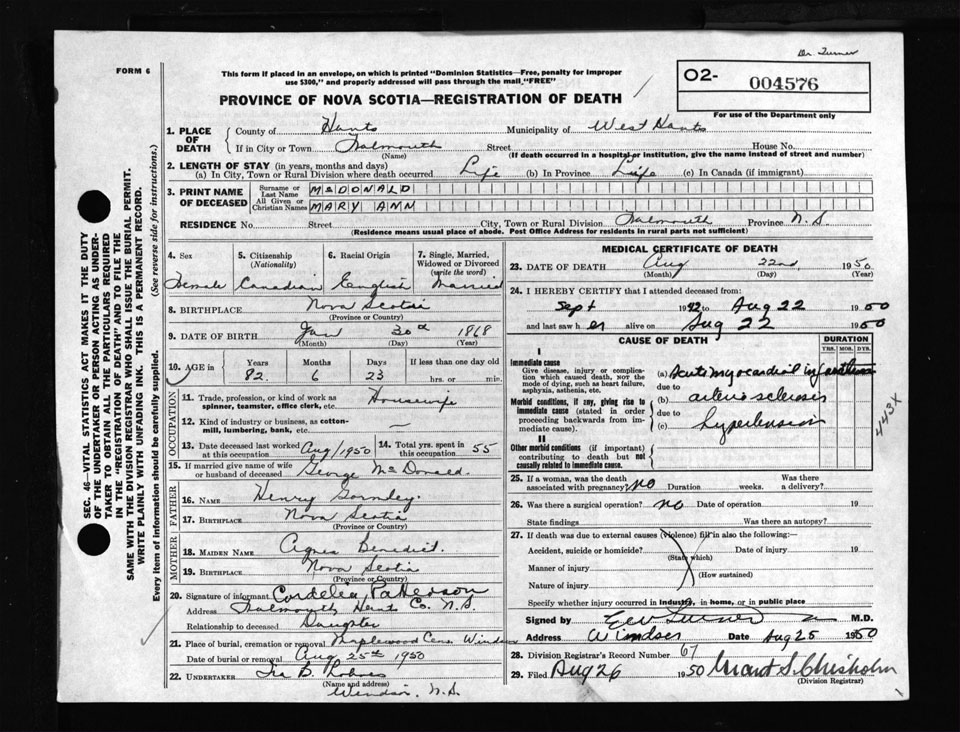 Dr Turner
FORM 6
This form if placed in an envelope, on which is printed "Dominion Statistics—Free, penalty for improper
use $300," and properly addressed will pass through the mail "FREE"
PROVINCE OF NOVA SCOTIA—REGISTRATION OF DEATH
O2- 004576
For use of the Department only
1. PLACE OF DEATH
County of Hants Municipality of West Hants
If in City or Town Falmouth Street House No.
(Name) (If death occurred in a hospital or institution, give the name instead of street and number)
2. LENGTH OF STAY (in years, months and days)
(a) In City, Town or Rural Division where death occurred Life (b) In Province Life (c) In Canada (if immigrant)
3. PRINT NAME OF DECEASED
Surname or Last Name McDONALD
All Given or Christian Names MARY ANN
RESIDENCE No. Street City, Town or Rural Division Falmouth Province N.S.
(Residence means usual place of abode. Post Office Address for residents in rural parts not sufficient)
SEC. 46—VITAL STATISTICS ACT MAKES IT THE DUTY
OF THE UNDERTAKER OR PERSON ACTING AS UNDER-
TAKER TO OBTAIN ALL THE PARTICULARS REQUIRED
IN THE "REGISTRATION OF DEATH" AND TO FILE THE
SAME WITH THE DIVISION REGISTRAR WHO SHALL ISSUE THE BURIAL PERMIT.
WRITE PLAINLY WITH UNFADING INK. THIS IS A PERMANENT RECORD.
Every item of information should be carefully supplied. (See reverse side for instructions.)
4. Sex 5. Citizenship (Nationality) 6. Racial Origin 7. Single, Married, Widowed or Divorced (write the word)
Female Canadian English Married
8. BIRTHPLACE Nova Scotia
(Province or Country)
9. DATE OF BIRTH Jan 30th 1868
(Month) (Day) (Year)
10. AGE in Years Months Days If less than one day old
82 6 23 hrs. or min.
OCCUPATION
11. Trade, profession, or kind of work as spinner, teamster, office clerk, etc. Housewife
12. Kind of industry or business, as cotton-mill, lumbering, bank, etc. —
13. Date deceased last worked at this occupation Aug/1950 14. Total yrs. spent in this occupation 55
15. If married give name of wife or husband of deceased George McDonald.
FATHER
16. NAME Henry Gormley.
17. BIRTHPLACE Nova Scotia
(Province or Country)
MOTHER
18. MAIDEN NAME Agnes Benedict.
19. BIRTHPLACE Nova Scotia
(Province or Country)
20. Signature of informant Cordelia Patterson
Address Falmouth, Hants Co. N.S.
Relationship to deceased Daughter
21. Place of burial, cremation or removal Maplewood Cem. Windsor
Date of burial or removal Aug 25th 1950
22. UNDERTAKER Ira B.
(Name and address)
Windsor, N.S.
MEDICAL CERTIFICATE OF DEATH
23. DATE OF DEATH Aug 22nd, 1950
(Month) (Day) (Year)
24. I HEREBY CERTIFY that I attended deceased from:
Sept 1942 to Aug 22 1950
and last saw h er alive on Aug 22 1950
CAUSE OF DEATH DURATION
YRS. MOS. DYS.
I
Immediate cause
Give disease, injury or complica-
tion which caused death, not the
mode of dying, such as heart failure,
asphyxia, asthenia, etc.
(a) Acute myocardial
due to
Morbid conditions, if any, giving rise to
immediate cause (stated in order
proceeding backwards from im-
mediate cause).
(b) arterio sclerosis
due to
(c) hypertension
443X
II
Other morbid conditions (if important)
contributing to death but not
causally related to immediate cause.
25. If a woman, was the death associated with pregnancy? no Duration weeks. Was there a delivery?
26. Was there a surgical operation? no Date of operation 19
State findings Was there an autopsy?
27. If death was due to external causes (violence) fill in also the following:—
Accident, suicide or homicide? Date of injury 19
(State which)
Manner of injury
(How sustained)
Nature of injury
Specify whether injury occurred in industry, in home, or in public place
Signed by Turner M.D.
Address Windsor Date Aug 25 1950
28. Division Registrar's Record Number 67
29. Filed Aug 26 1950 Grant S. Chisholm
(Division Registrar)